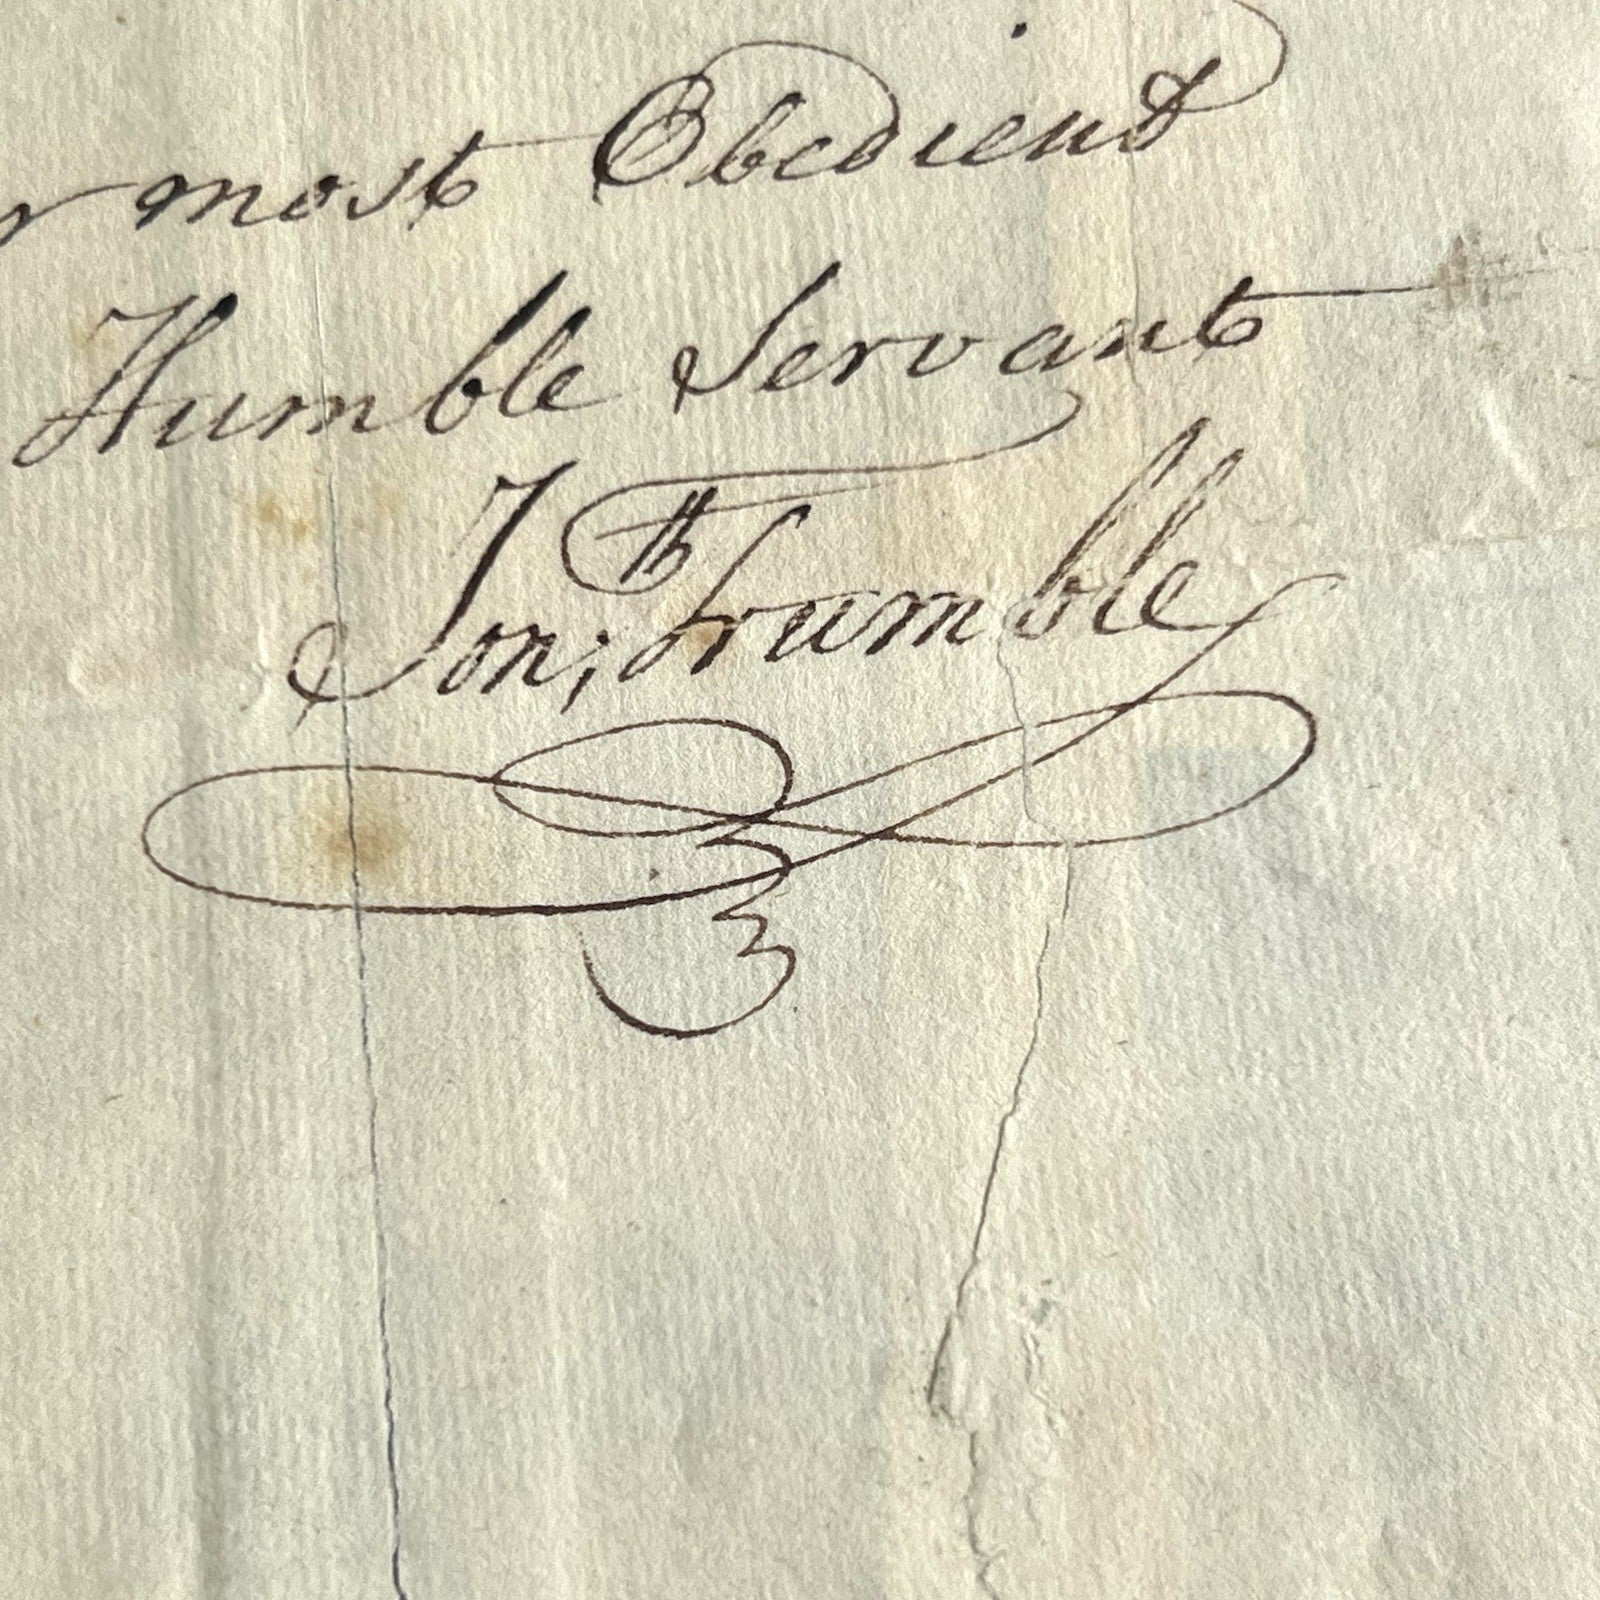 r most Obedient
Humble Servant
Jon;th Trumble